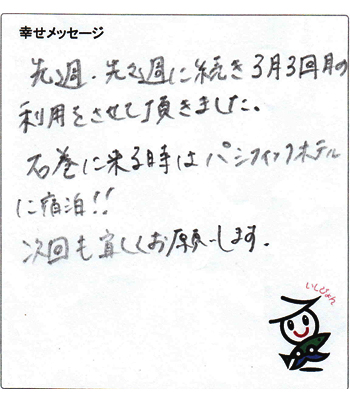 幸せメッセージ
先週・先々週に続き3月3回目の
利用をさせて頂きました。
石巻に来る時はパシフィックホテル
に宿泊!!
次回も宜しくお願いします.
いしぴょん